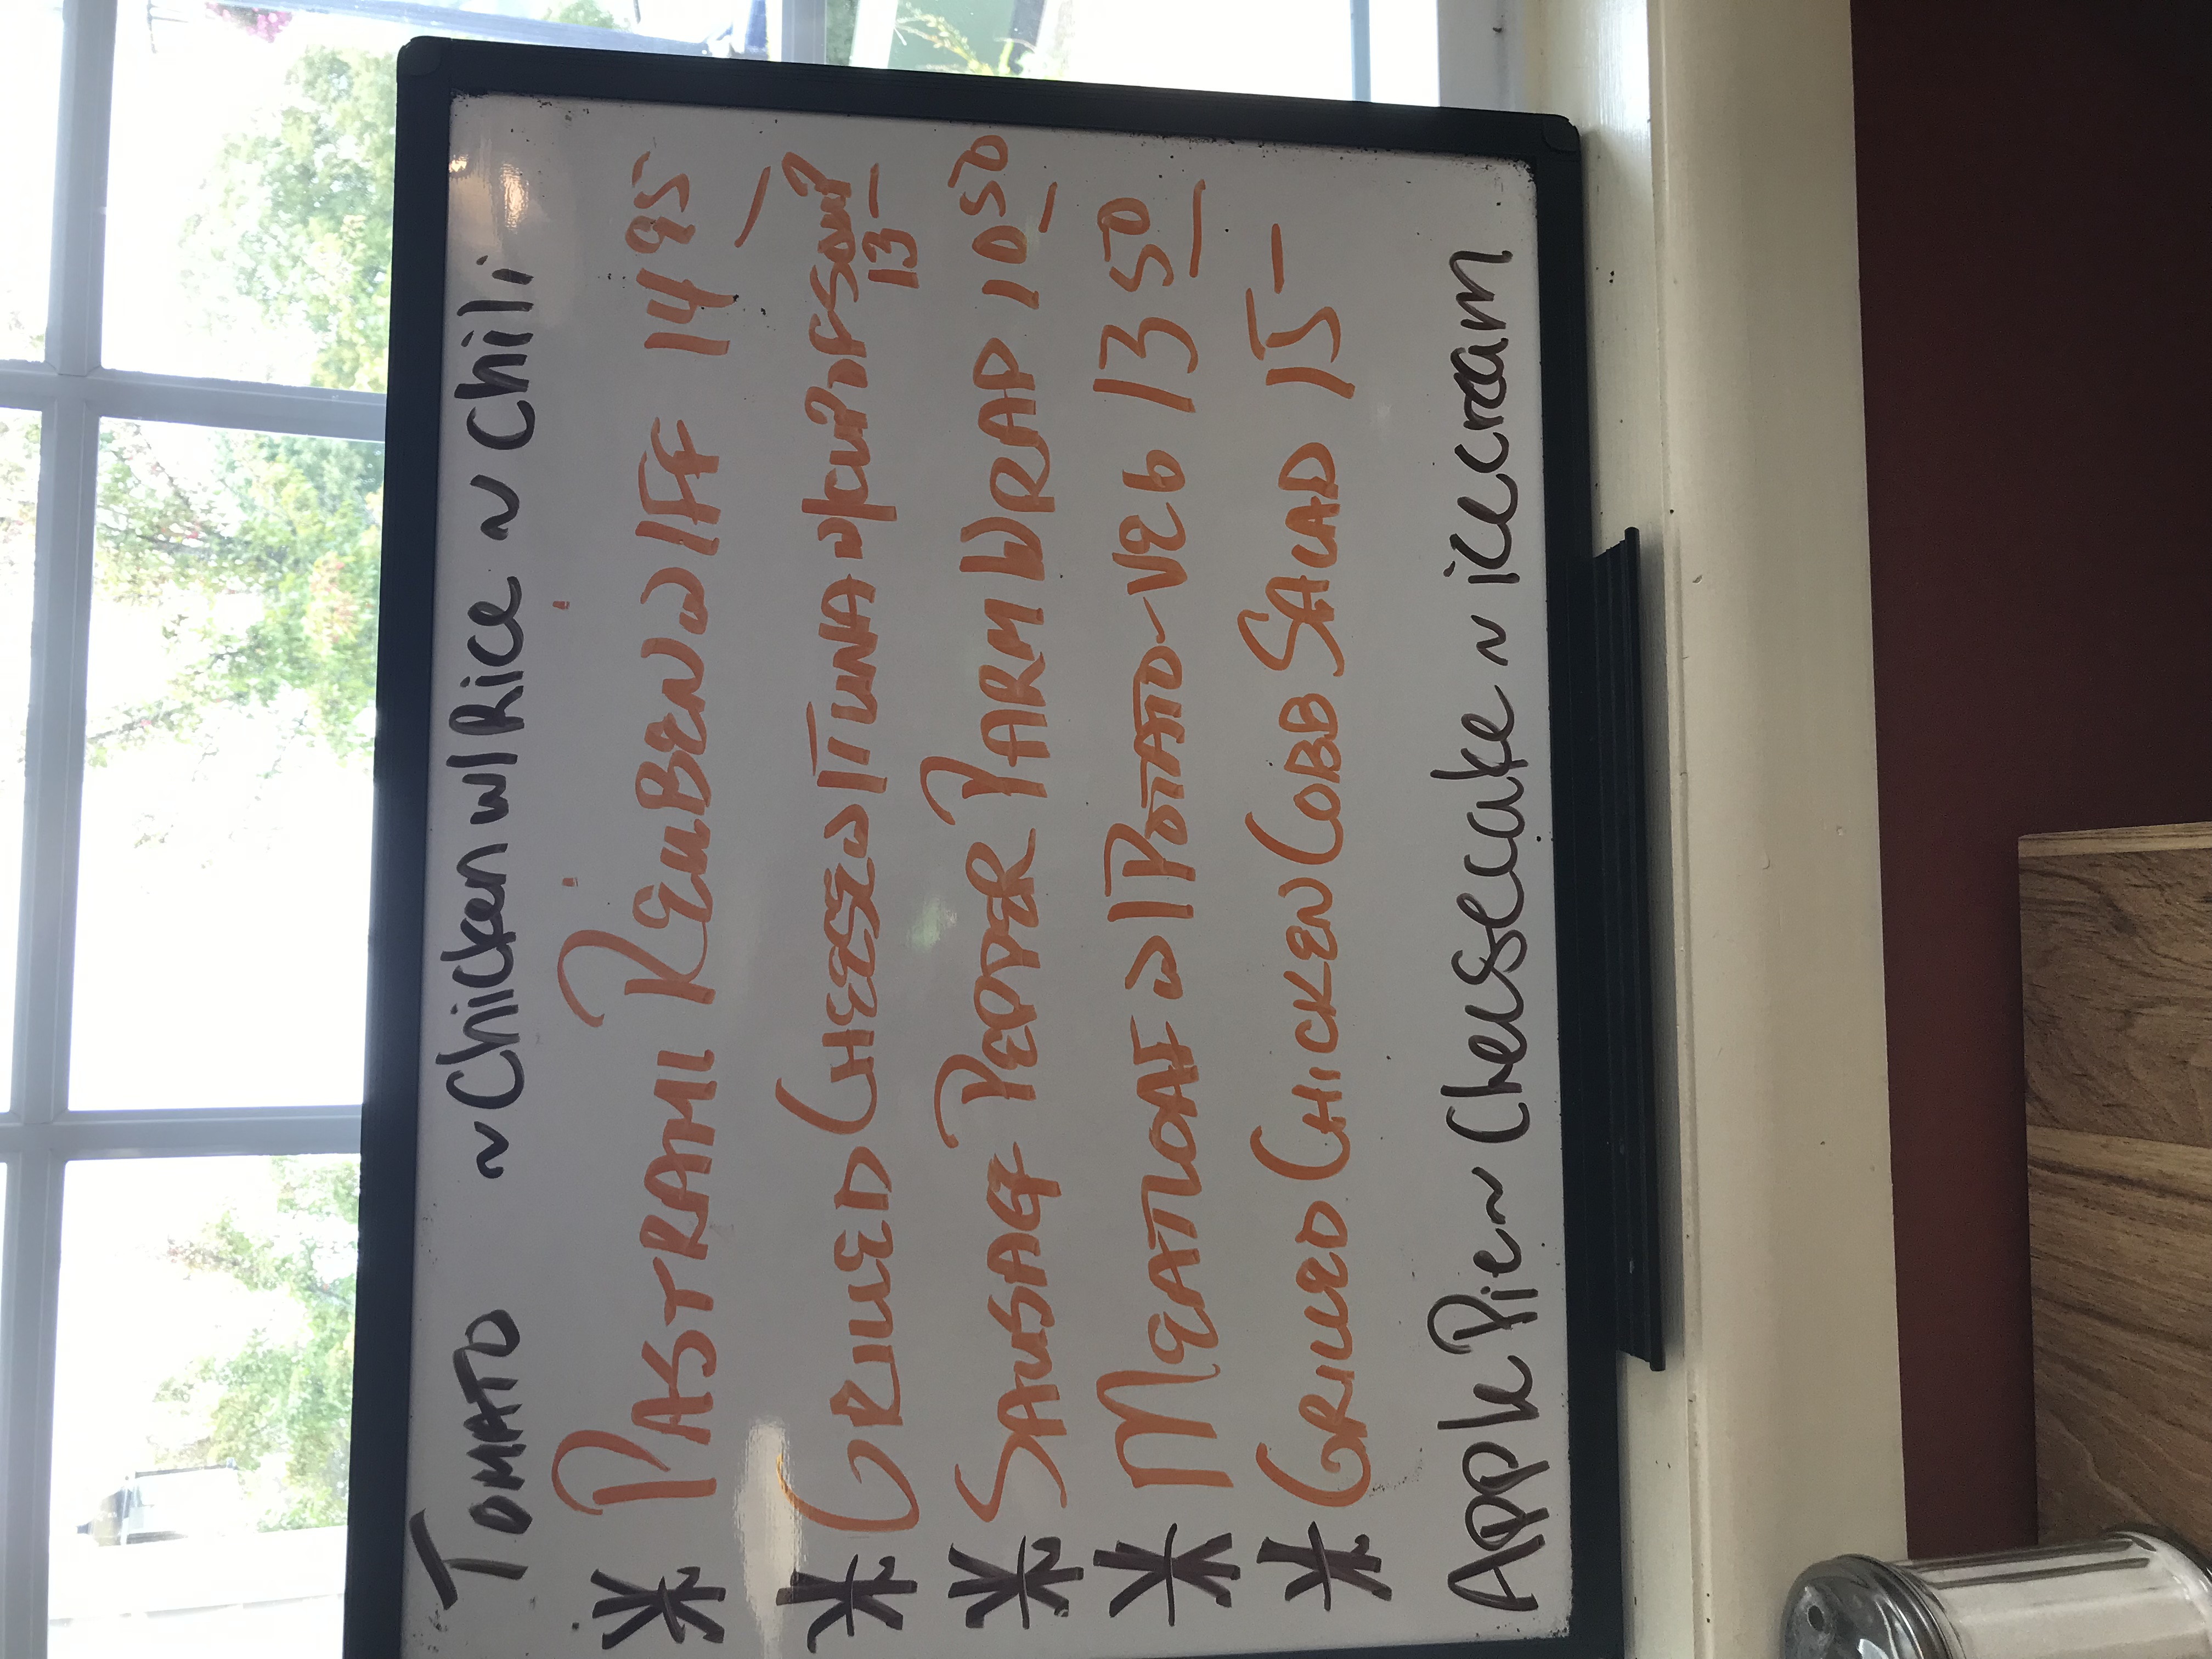 TOMATO ~ Chicken w/Rice ~ Chili
* PASTRAMI REUBEN W/FF 14 95
* GRILLED CHEESE W/TUNA W/CUP OF SOUP 13 -
* SAUSAGE PEPPER PARM WRAP 10 50
* MEATLOAF W/POTATO-VEG 13 50
* GRILLED CHICKEN COBB SALAD 15 -
Apple Pie ~ Cheesecake ~ icecream